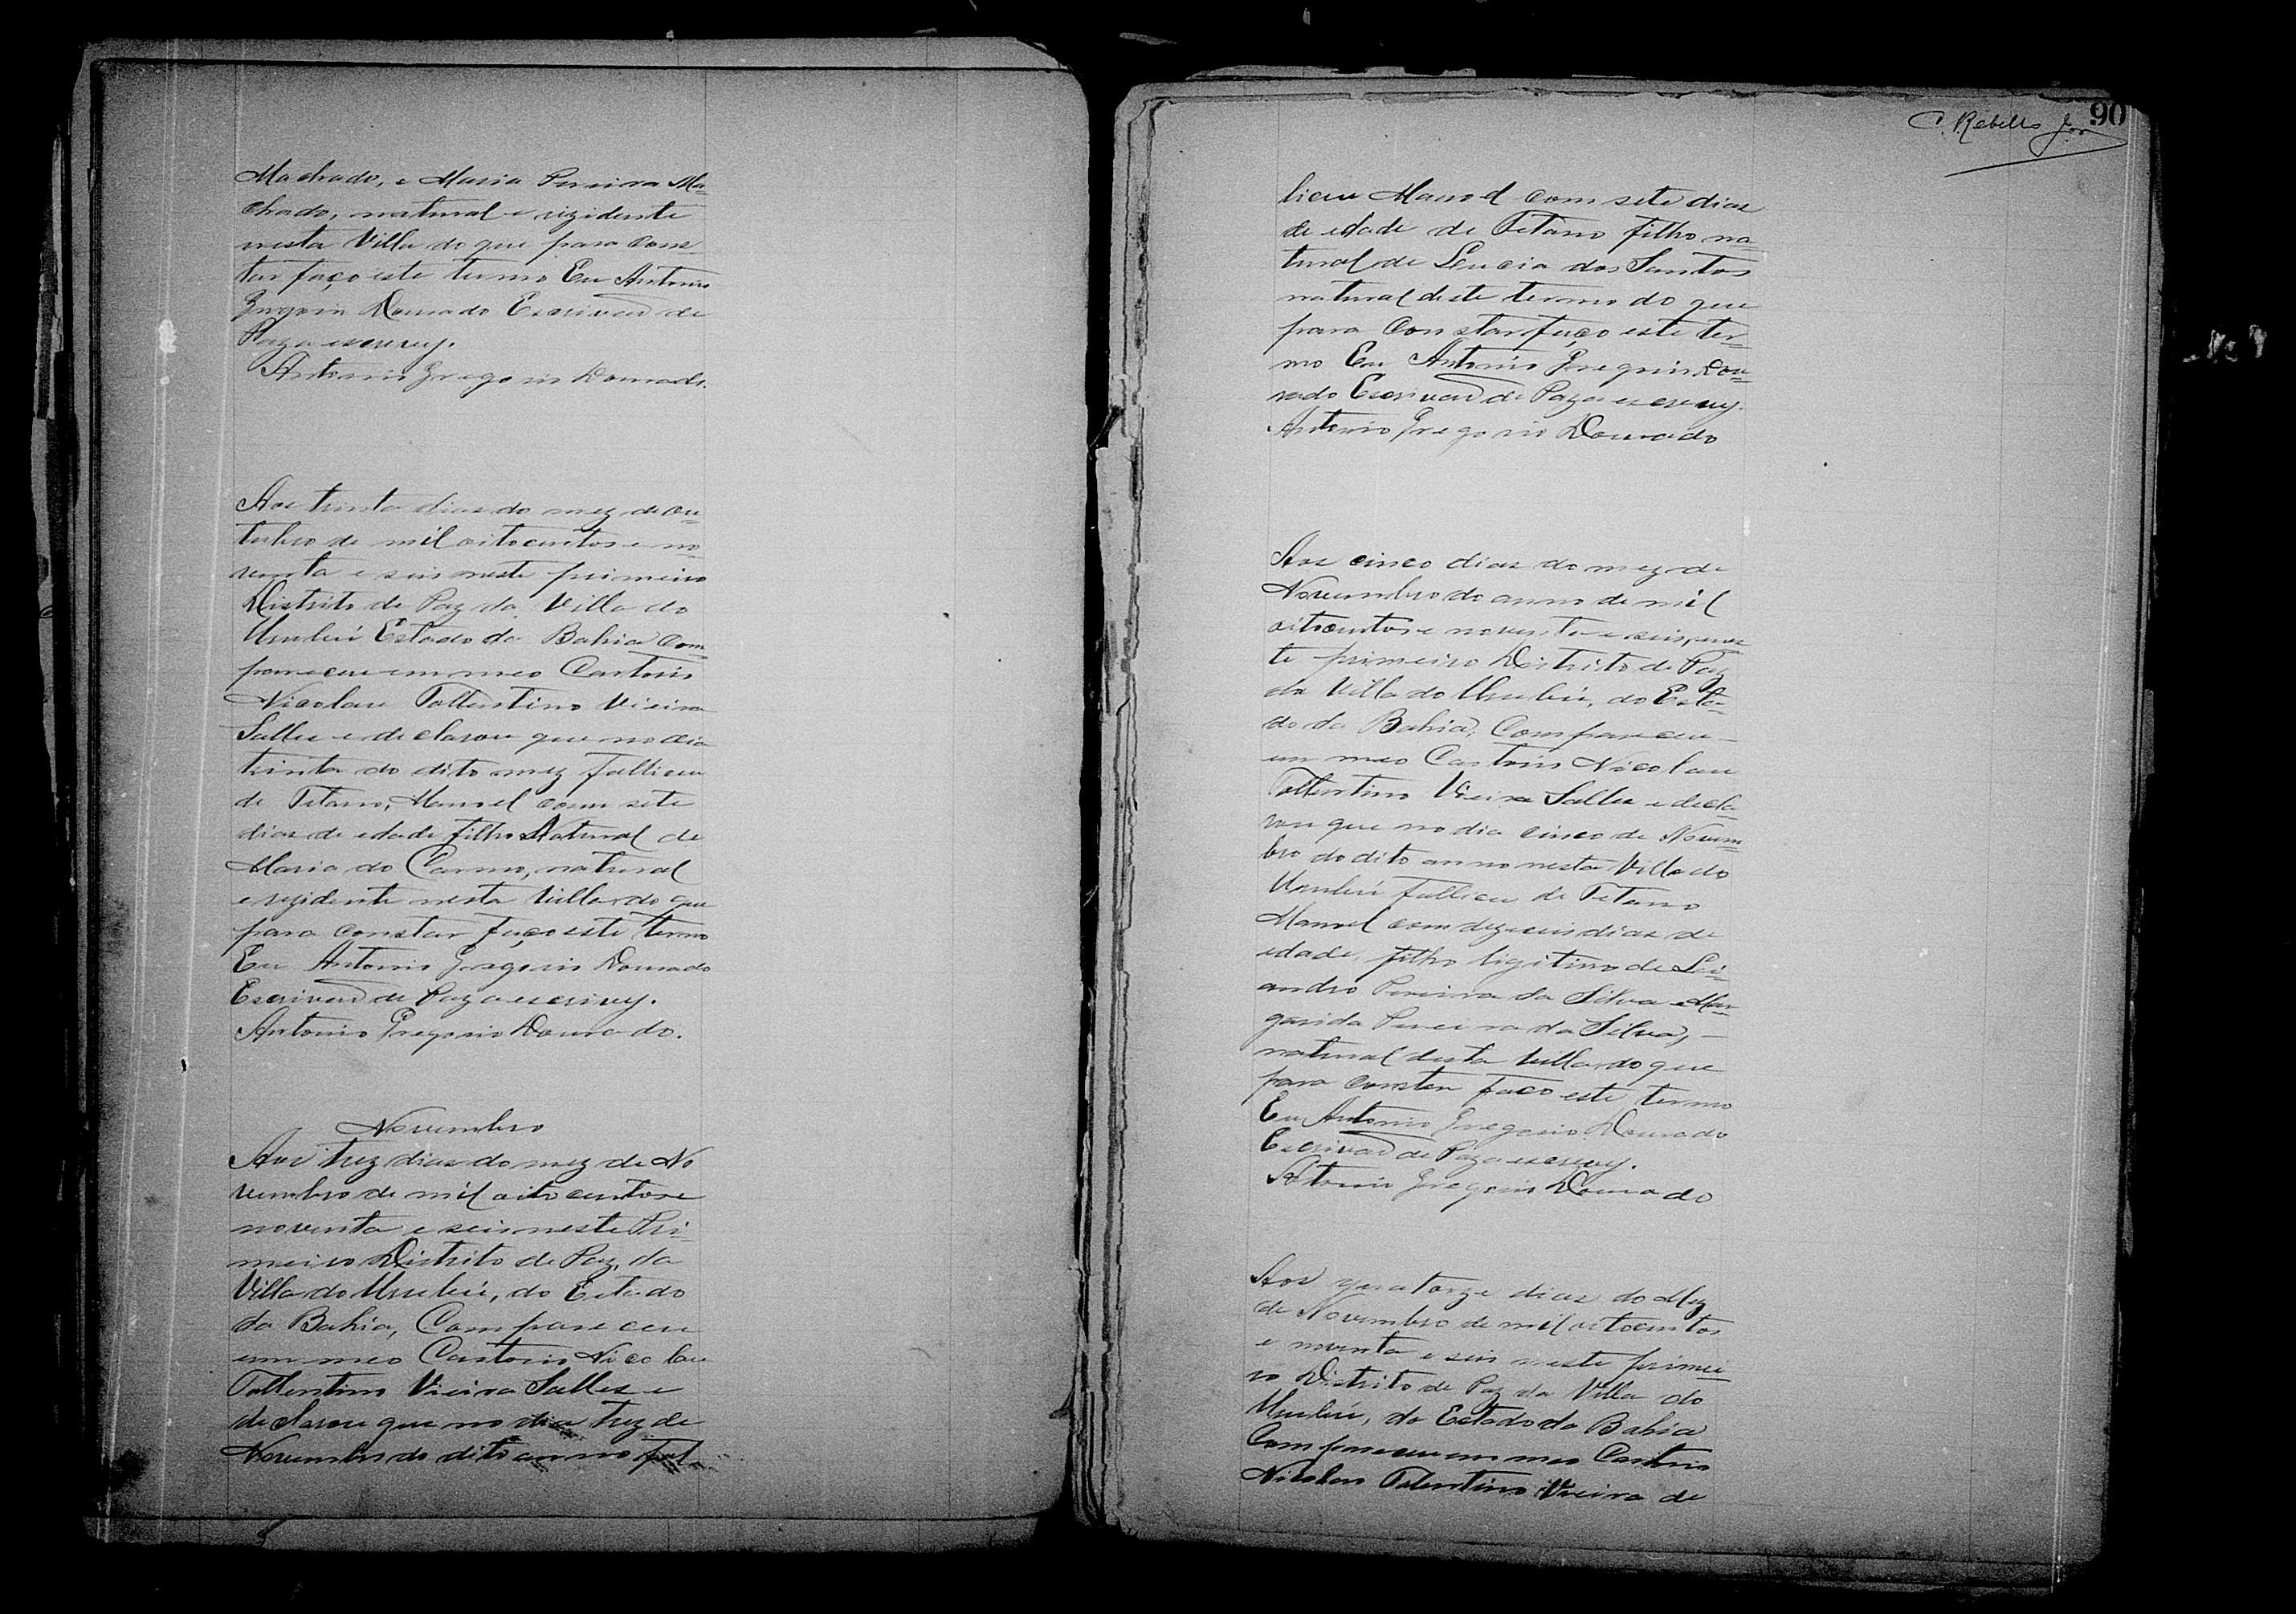 Machado, e Maria Pereira Ma-
chado, natural e rezidente
nesta Villa do que para cons
tar faço este termo Eu Antonio
Gregorio Dourado Escrivão de
Paz a escrevy.
Antonio Gregorio Dourado.
Aos trinta dias do mez de Ou-
tubro de mil oitocentos e no-
venta e seis neste primeiro
Districto de Paz da Villa do
Urubú Estado da Bahia com
pareceu em meo Cartorio
Nicolau Tollentino Vieira
Salles e declarou que no dia
trinta do dito mez falliceu
de Tetano, Manoel com sete
dias de edade filho Natural de
Maria do Carmo, natural
e rezidente nesta Villa do que
para constar faço este termo
Eu Antonio Gregorio Dourado
Escrivão de Paz a escrivy.
Antonio Gregorio Dourado.
Novembro
Aos trez dias do mez de No
vembro de mil oito centos e
noventa e seis neste Pri-
meiro Districto de Paz, da
Villa do Urubú, do Estado
da Bahia, Compareceu
em meo Cartorio Nicolau
Tollentino Vieira Salles e
declarou que no dia trez de
Novembro do dito anno fal
90
C. Rebello Jor
liceu Manoel com sete dias
de edade de Tetano filho na-
tural de Lucia dos Santos
natural deste termo do que
para constar faço este ter-
mo Eu Antonio Gregorio Dou-
rado Escrivão de Paz a escrevy.
Antonio Gregorio Dourado
Aos cinco dias do mez de
Novembro do anno de mil
oitocentos e noventa e seis, nes
te primeiro Districto de Paz
da Villa do Urubú, do Esta-
do da Bahia, Compareceu
em meo Cartorio Nicolau
Tollentino Vieira Salles e decla-
rou que no dia cinco de Novem-
bro do dito anno nesta Villa do
Urubú falliceu de Tetano
Manoel com dezeseis dias de
edade, filho ligitimo de Lei-
andro Pereira da Silva e Mar-
garida Pereira da Silva,
natural desta Villa do que
para constar faço este termo
Eu Antonio Gregorio Dourado
Escrivão de Paz a escrevy.
Antonio Gregorio Dourado
Aos quatorze dias do Mez
de Novembro de mil oitocentos
e noventa e seis neste primei-
ro Districto de Paz da Villa do
Urubú, do Estado da Bahia
Compareceu em meo Cartorio
Nicolau Tolentino Vieira de